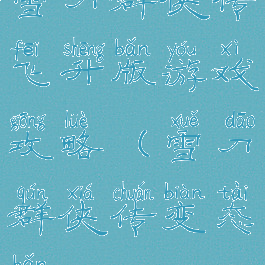 雪刀群侠传
fēi shēng bǎn yóu xì
飞升版游戏
gōng lüè xuě dāo
攻略（雪刀
qún xiá chuán biàn tài
群侠传变态
bǎn